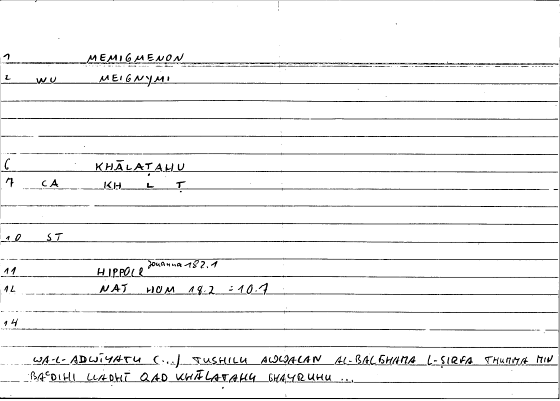 1 MEMIGMENON
2 WU MEIGNYMI
6 KHĀLAṬAHU
7 CA KH L Ṭ
10 ST
11 HIPPOCR Joanna 182.1
12 NAT HOM 18.2 = 10.7
14
WA-L-ADWIYATU (...) TUSHILU AWWALAN AL-BALGHAMA L-ṢIRFA THUMMA MIN
BAʿDIHI LLADHĪ QAD KHĀLAṬAHU GHAYRUHU ...